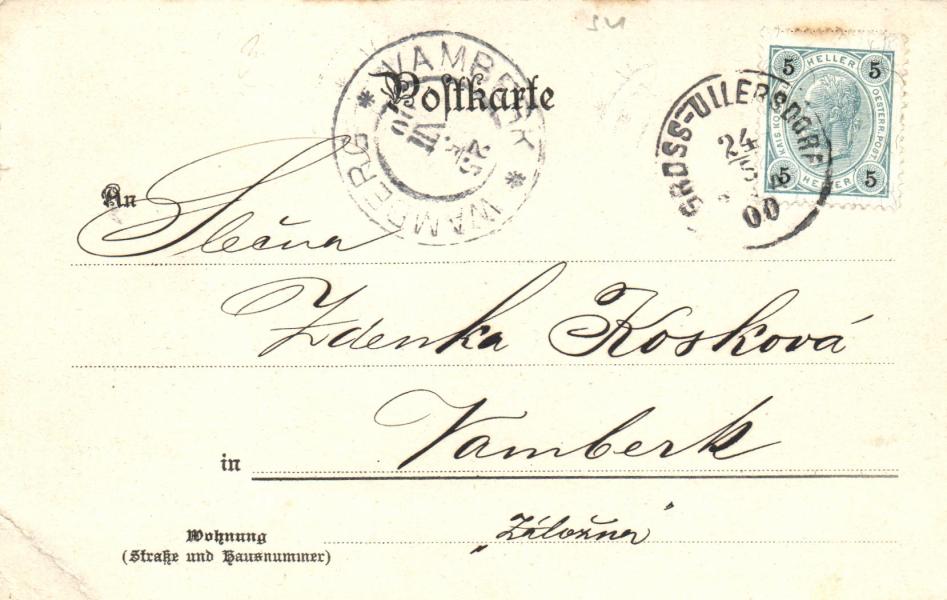 Postkarte
VAMBERK
WAMBERG
25
VII
00
GROSS-ULLERSDORF
24
00
5 HELLER 5
KAIS. KÖN. OESTERR. POST.
5 HELLER 5
An
Slečna
Zdenka Kosková
in
Vamberk
Wohnung
„Záložna"
(Straße und Hausnummer)